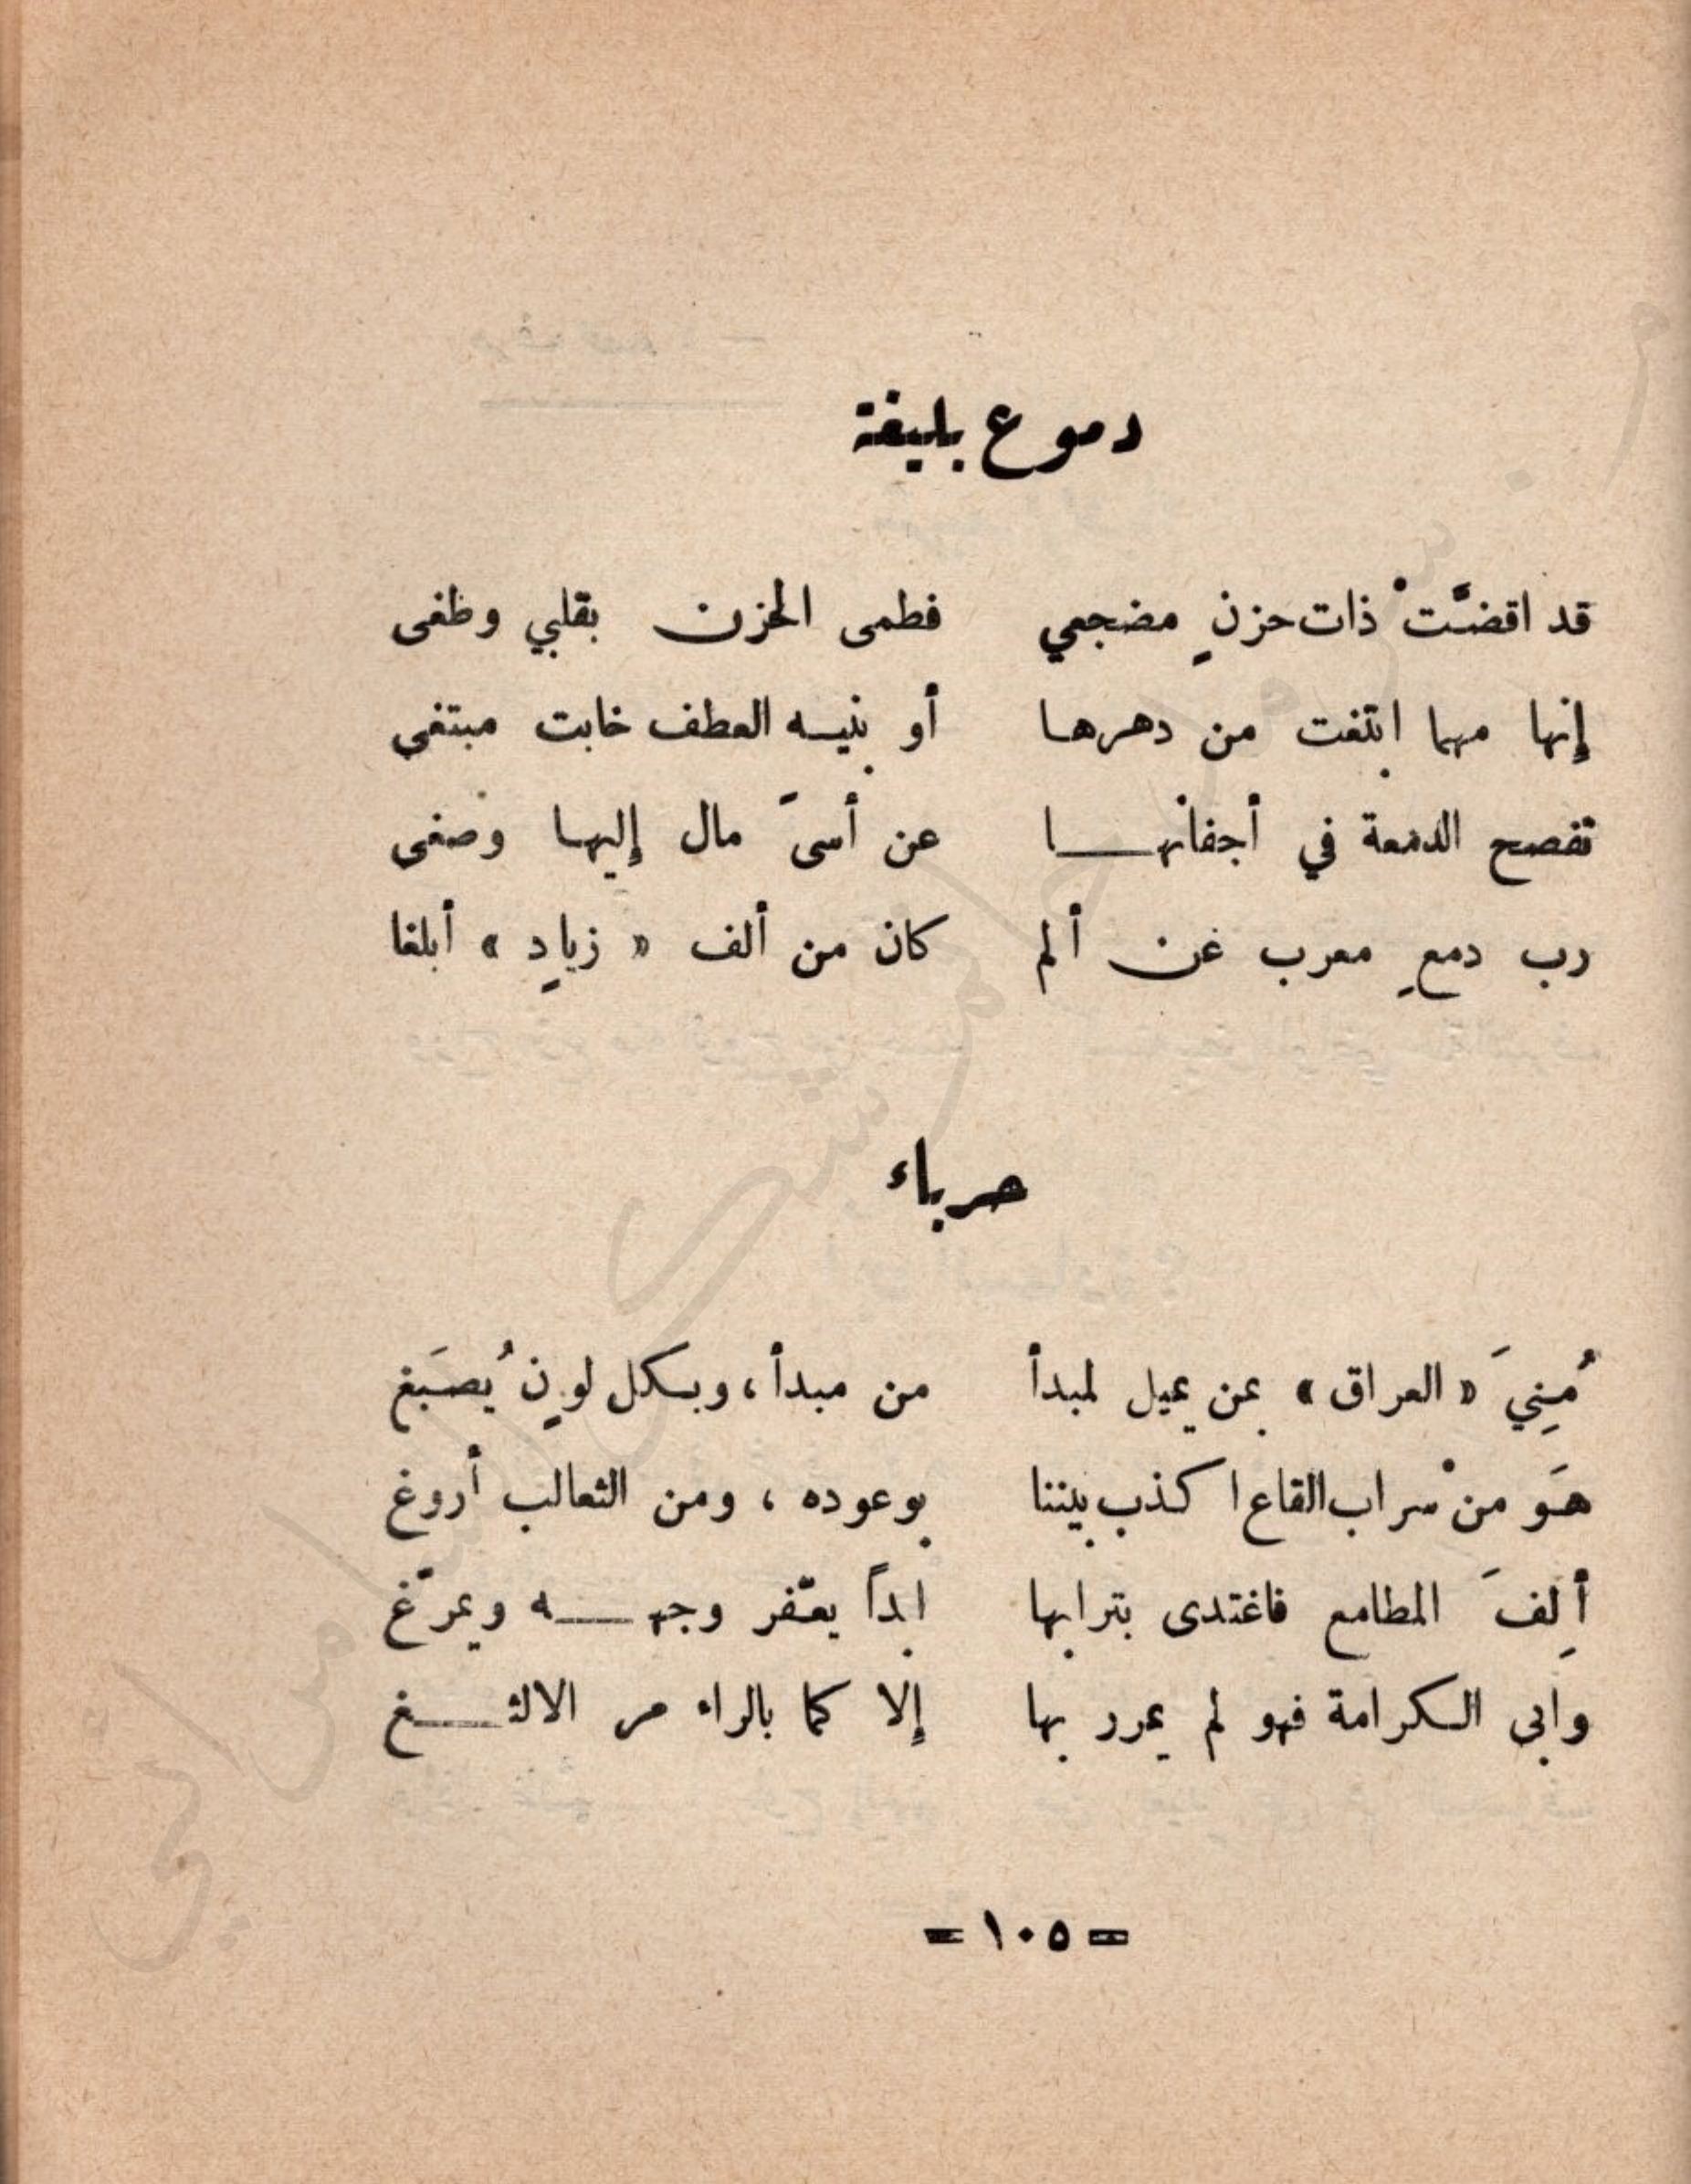 دموع بليغة
قد اقضَّتْ ذات حزنٍ مضجعي فطمى الحزن بقلبي وطغى
إنها مهما ابتغت من دهرها أو بنيه العطف خابت مبتغى
تفصح الدمعة في أجفانها عن أسىً مال إليها وصغى
رب دمعٍ معرب عن ألم كان من ألف « زيادٍ » أبلغا
حرباء
مُنِيَ « العراق » بمن يميل لمبدأ من مبدأ ، وبكل لونٍ يُصبَغ
هوَ منْ سراب القاع اكذب بيننا بوعوده ، ومن الثعالب أروغ
ألِفَ المطامع فاغتدى بترابها ابداً يعفّر وجهه ويمرّغ
وابى الكرامة فهو لم يمرر بها إلا كما بالراء مر الالثغ
= ١٠٥ =